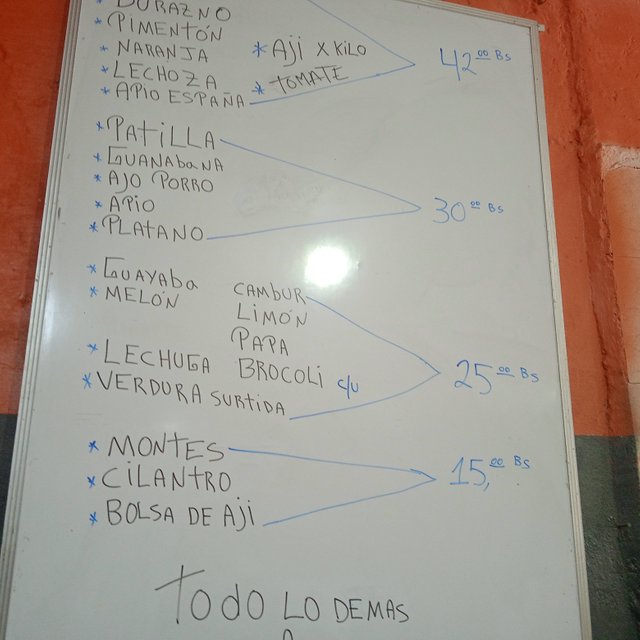 * DURAZNO
* PIMENTÓN
* NARANJA * AJi X KiLO
* LECHOZA * TOMATE
* APIO ESPAÑA
42 00 Bs
* PATiLLA
* GUANABANA
* AJO PORRO
* APIO
* PLATANO
30 00 Bs
* GUAYABA CAMBUR
* MELÓN LIMÓN
PAPA
* LECHUGA BROCOLi c/u
* VERDURA SURTIDA
25 00 Bs
* MONTES
* CiLANTRO
* BOLSA DE AJi
15,00 Bs
TODO LO DEMAS